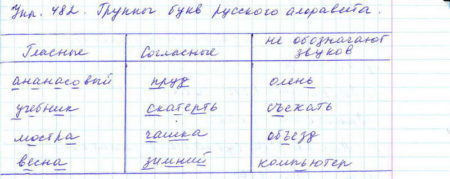 Упр. 482. Группы букв русского алфавита.
Гласные Согласные не обозначают звуков
ананасовый пруд олень
учебник скатерть съехать
мостра чашка объезд
весна зимний компьютер